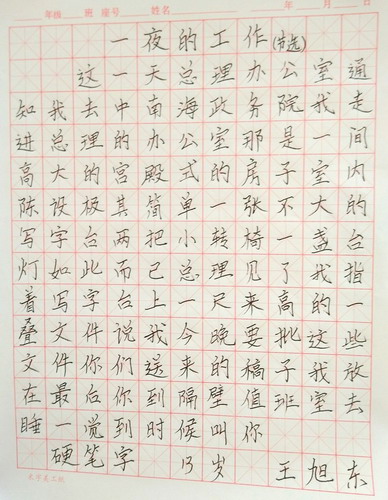 年级 班 座号 姓名 年 月 日
一夜的工作(节选)
这一天总理办公室通
知我去中南海政务院我走
进总理的办公室那是一间
高大的宫殿式的房子室内
陈设极其简单一张不大的
写字台两把小转椅一盏台
灯如此而已总理见了我指
着写字台上一尺来高的一
叠文件说我今晚要批这些
文件你们送来的稿子我放
在最后你到隔壁值班室去
睡一觉到时候叫你
硬笔字 13岁 王旭东